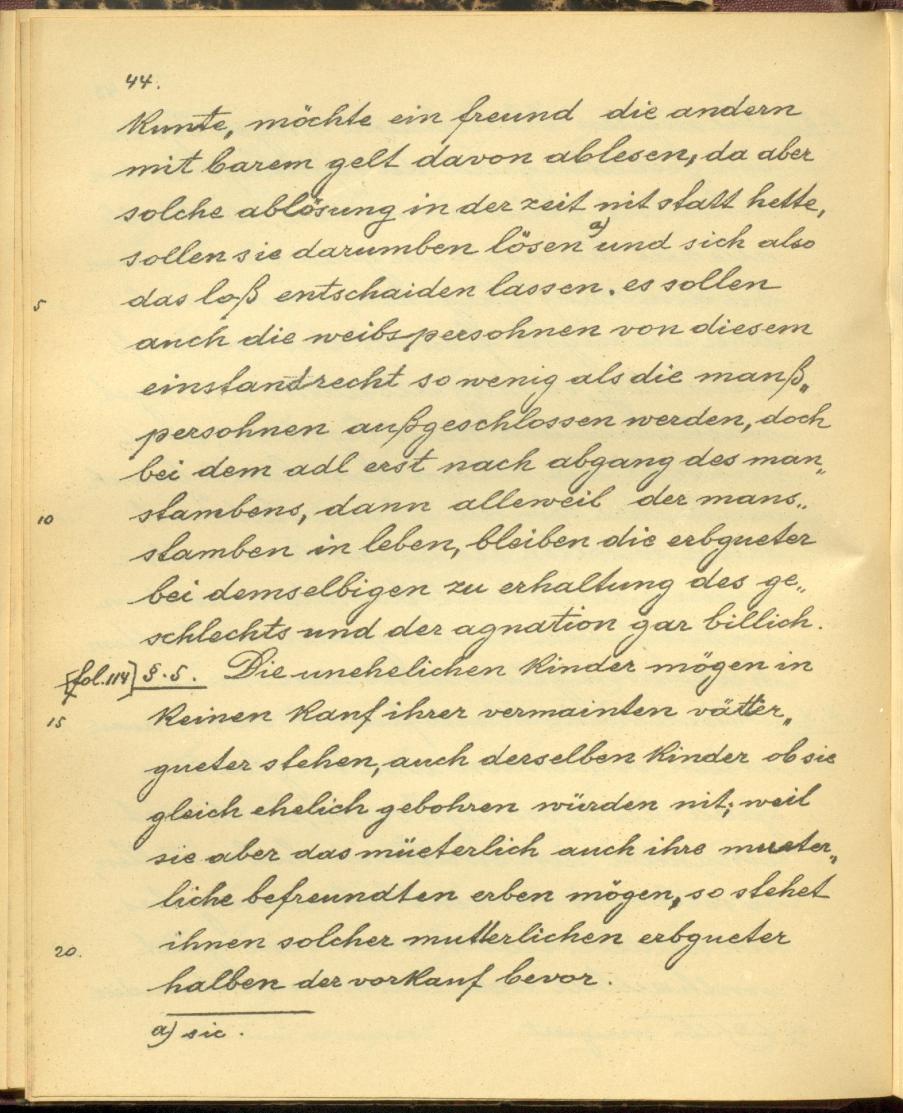 44.
kunte, möchte ein freund die andern
mit barem gelt davon ablesen, da aber
solche ablösung in der zeit nit statt hette,
sollen sie darumben lösen a) und sich also
5 das loß entschaiden lassen. es sollen
auch die weibspersohnen von diesem
einstandrecht so wenig als die manß„
persohnen außgeschlossen werden, doch
bei dem adl erst nach abgang des man„
10 stambens, dann alleweil der mans„
stamben in leben, bleiben die erbgueter
bei demselbigen zu erhaltung des ge„
schlechts und der agnation gar billich.
[fol. 114] §. 5. Die unehelichen kinder mögen in
15 keinen kauf ihrer vermainten vätter„
gueter stehen, auch derselben kinder ob sie
gleich ehelich gebohren würden nit; weil
sie aber das müeterlich auch ihre mueter„
liche befreundten erben mögen, so stehet
20. ihnen solcher mutterlichen erbgueter
halben der vorkauf bevor.
a) sic.